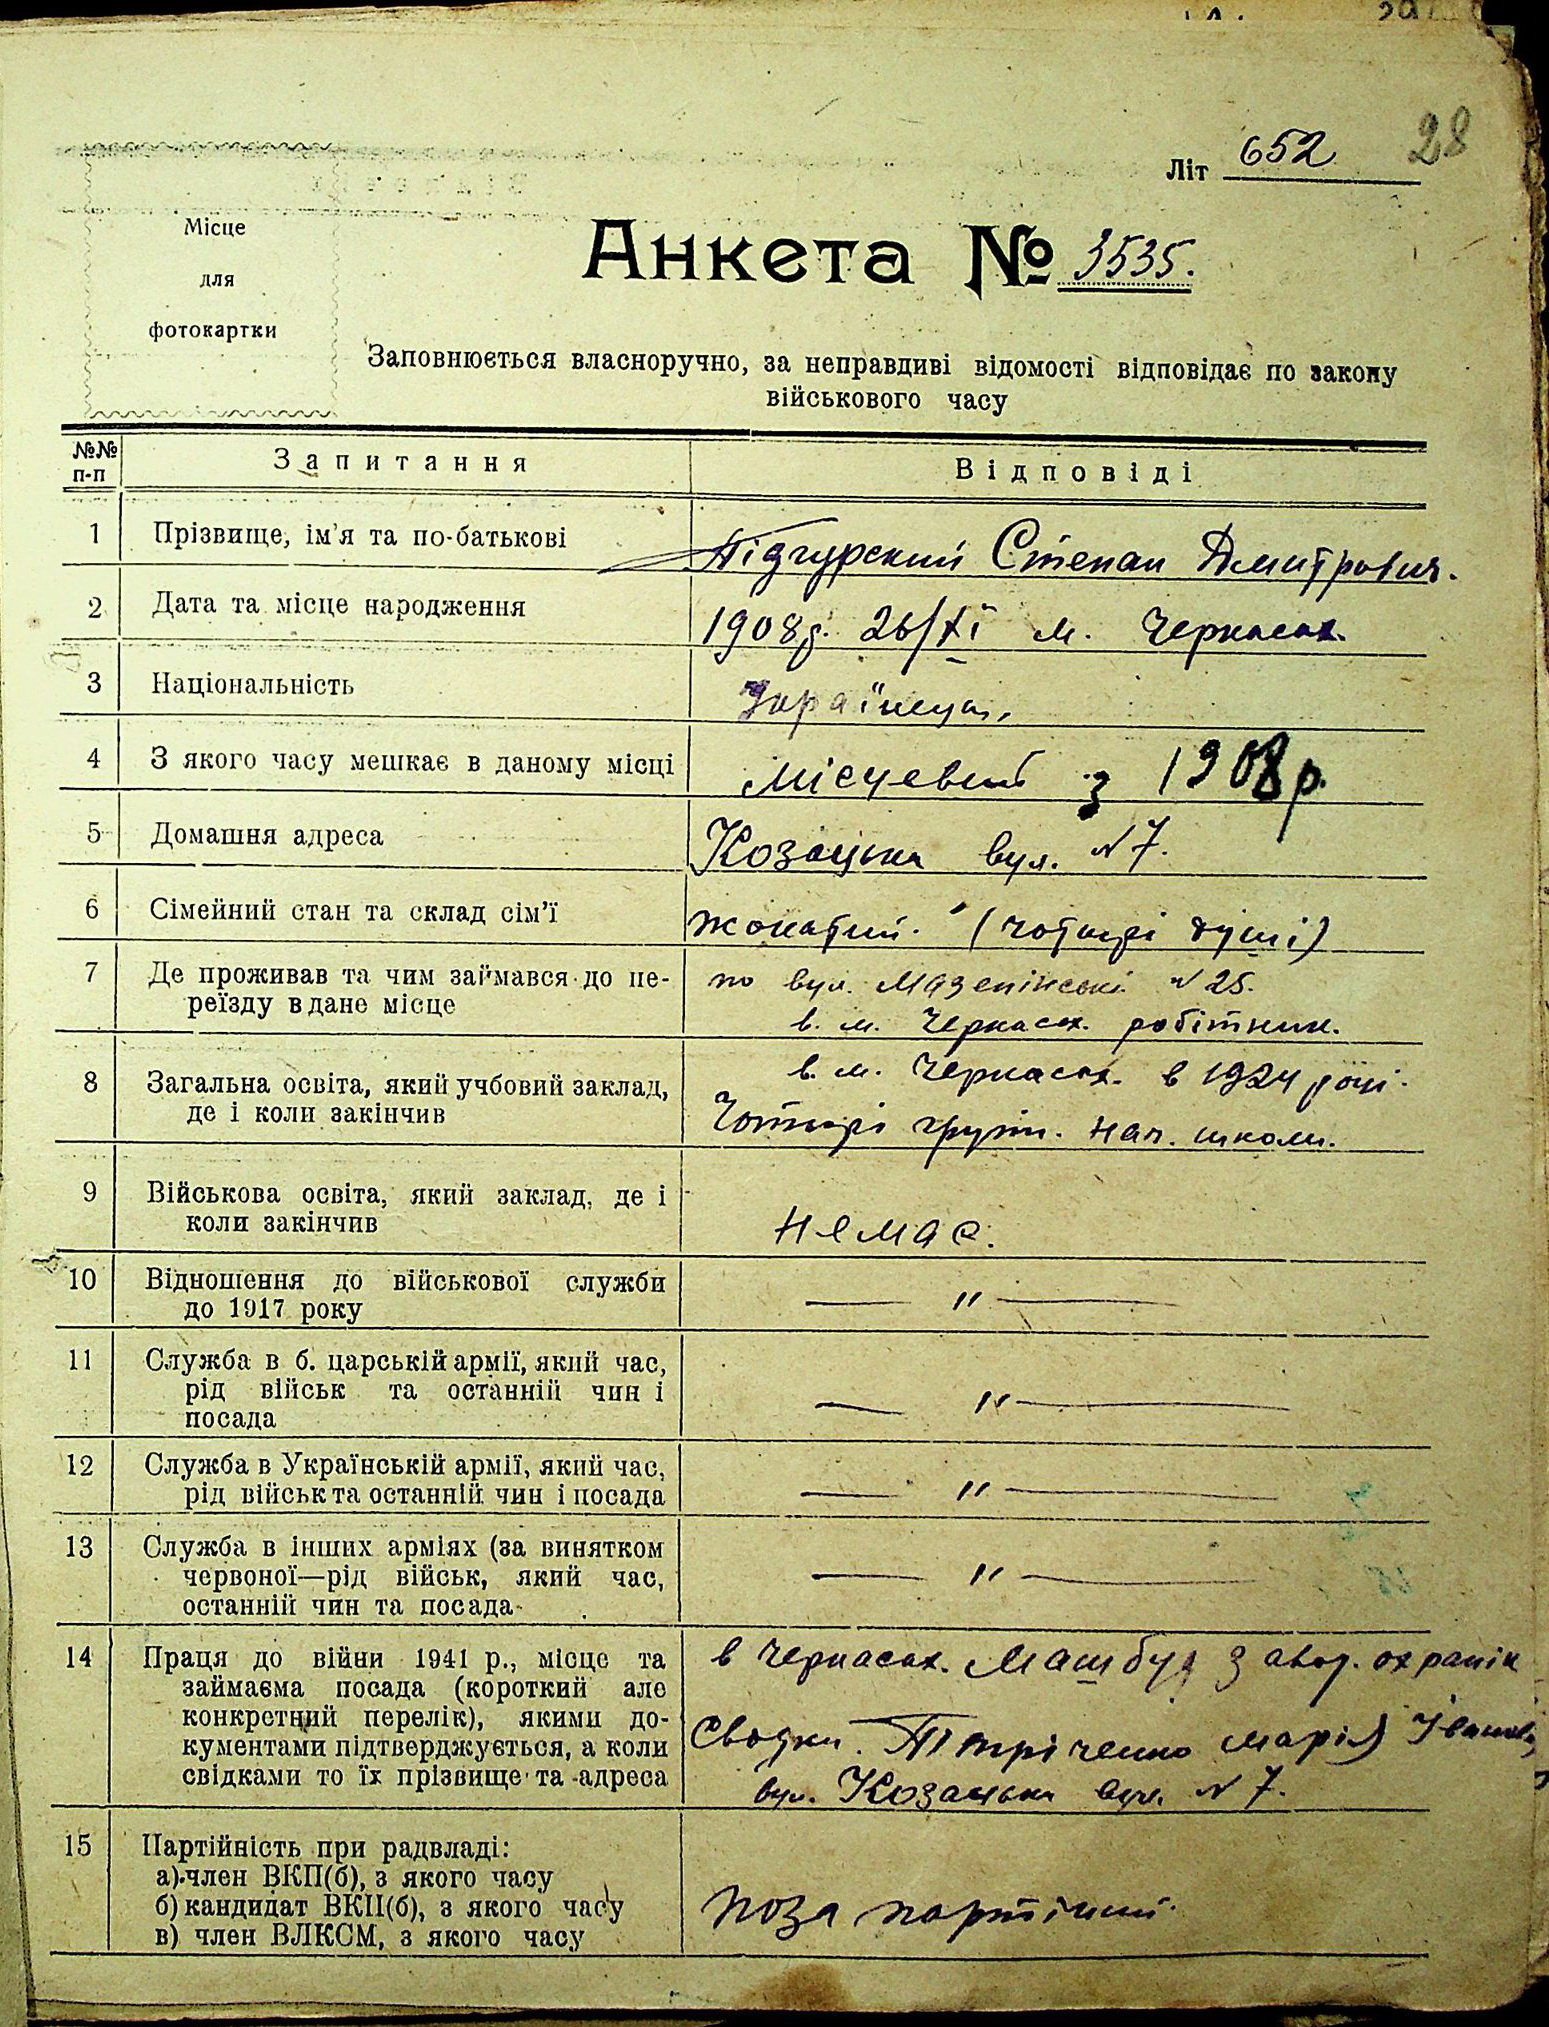 28
Літ 652
Місце
для
фотокартки
Анкета № 3535.
Заповнюється власноручно, за неправдиві відомості відповідає по закону
військового часу
№№ п-п
Запитання
Відповіді
1 Прізвище, ім'я та по-батькові
Підгурский Степан Дмитрович.
2 Дата та місце народження
1908р. 26/XI м. Черкасах.
3 Національність
Українець.
4 З якого часу мешкає в даному місці
Місцевий з 1908 р.
5 Домашня адреса
Козацька вул. №7.
6 Сімейний стан та склад сім'ї
жонатий. (чотирі душі)
7 Де проживав та чим займався до пе-
реїзду в дане місце
по вул. Мазепінські №25.
в. м. Черкасах. робітник.
8 Загальна освіта, який учбовий заклад,
де і коли закінчив
в. м. Черкасах. в 1924 році.
Чотирі груп. нач. школи.
9 Військова освіта, який заклад, де і
коли закінчив
немає.
10 Відношення до військової служби
до 1917 року
— " —
11 Служба в б. царській армії, який час,
рід військ та останній чин і
посада
— " —
12 Служба в Українській армії, який час,
рід військ та останній чин і посада
— " —
13 Служба в інших арміях (за винятком
червоної—рід військ, який час,
останній чин та посада
— " —
14 Праця до війни 1941 р., місце та
займаєма посада (короткий але
конкретний перелік), якими до-
кументами підтверджується, а коли
свідками то їх прізвище та адреса
в Черкасах. Машбуд завод. охранік
Марія
вул. Козацька вул. №7.
15 Партійність при радвладі:
а) член ВКП(б), з якого часу
б) кандидат ВКП(б), з якого часу
в) член ВЛКСМ, з якого часу
поза партійний.